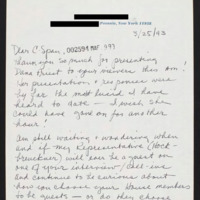 New York
3/25/93
Dear C Span, 002554 MAY 1993
Thank you so much for presenting
to your viewers this am!
presentation & responses were
by far the most lucid I have
heard to date — I wish she
could have gone on for another
hour!
Am still waiting & wondering when
and if my Representative (Hoch-
brueckner) will ever be a guest on
one of your interview/call-ins
and continue to be curious about
how you choose your House members
to be guests — or do they choose